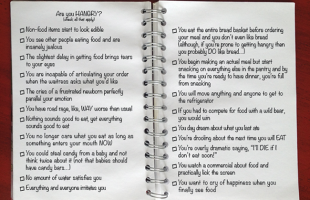 Are you HANGRY?
(check all that apply)
Non-food items start to look edible
You see other people eating food and are
insanely jealous
The slightest delay in getting food brings tears
to your eyes
You are incapable of articulating your order
when the waitress asks what you'd like
The cries of a frustrated newborn perfectly
parallel your emotion
You have road rage, like, WAY worse than usual
Nothing sounds good to eat, yet everything
sounds good to eat
You no longer care what you eat as long as
something enters your mouth NOW
You could steal candy from a baby and not
think twice about it (not that babies should
have candy bars...)
No amount of water satisfies you
Everything and everyone irritates you
You eat the entire bread basket before ordering
your meal and you don't even like bread
(although, if you're prone to getting hangry then
you probably DO like bread...)
You begin making an actual meal but start
snacking on everything else in the pantry and by
the time you're ready to have dinner, you're full
from snacking
You will move anything and anyone to get to
the refrigerator
If you had to compete for food with a wild bear,
you would win
You day dream about what you last ate
You're drooling about the next time you will EAT
You're overly dramatic saying, "I'll DIE if I
don't eat soon!"
You watch a commercial about food and
practically lick the screen
You want to cry of happiness when you
finally see food